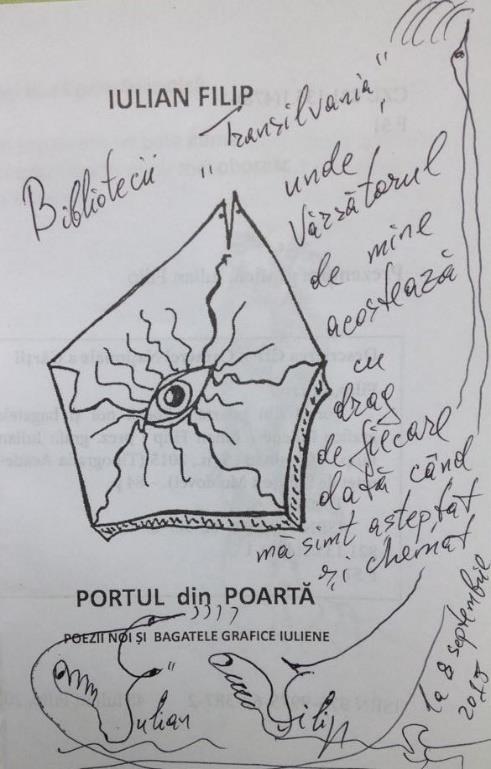 IULIAN FILIP
Bibliotecii "Transilvania",
unde
Vărsătorul
de mine
acostează
cu
drag
de fiecare
dată când
mă simt așteptat
și chemat
PORTUL din POARTĂ
POEZII NOI ȘI BAGATELE GRAFICE IULIENE
Iulian Filip
La 8 septembrie